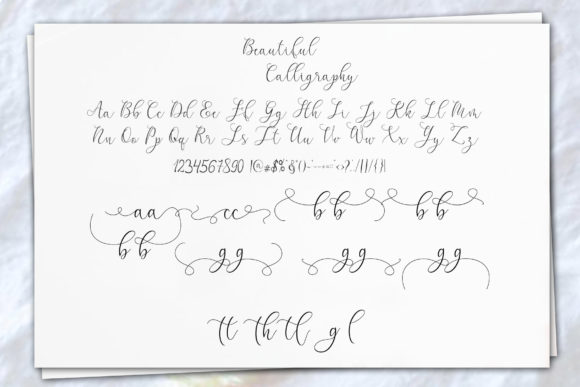 Beautiful
Calligraphy
Aa Bb Cc Dd Ee Ff Gg Hh Ii Jj Kk Ll Mm
Nn Oo Pp Qq Rr Ss Tt Uu Vv Ww Xx Yy Zz
1234567890
aa cc bb bb
bb gg gg gg
tt th tl g l